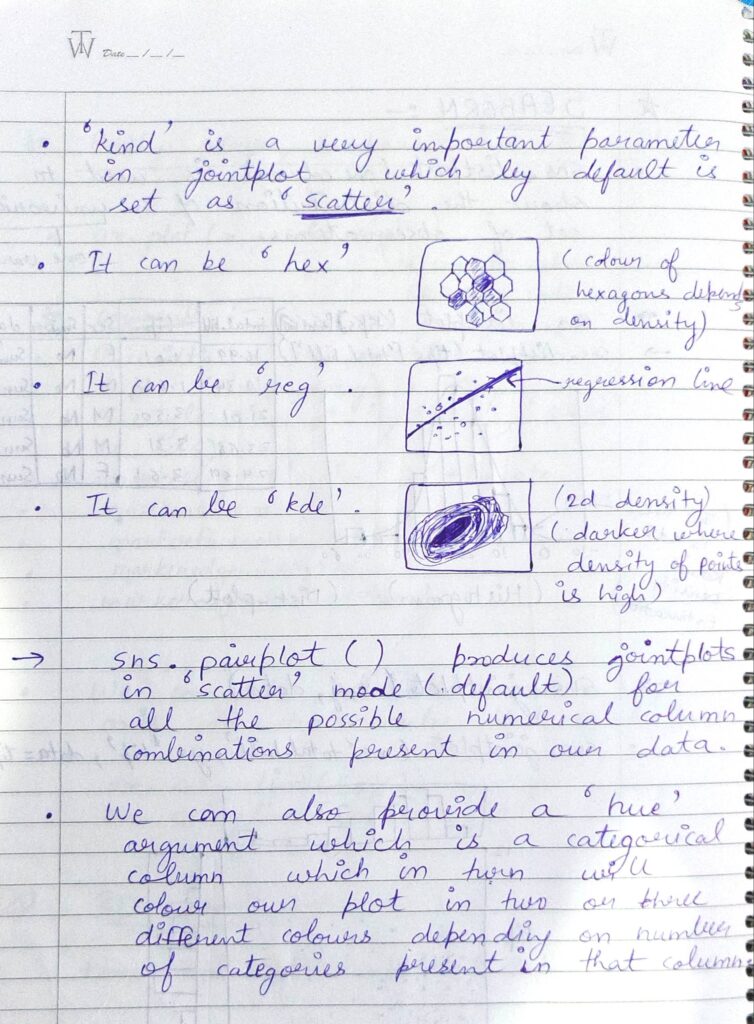 TW Date _/_/_
• 'kind' is a very important parameter
in jointplot which by default is
set as 'scatter'.
• It can be 'hex' (colour of
hexagons depends
on density)
• It can be 'reg'. ← regression line
• It can be 'kde'. (2d density)
(darker where
density of points
is high)
→ sns.pairplot() produces jointplots
in 'scatter' mode (default) for
all the possible numerical column
combinations present in our data.
• We can also provide a 'hue'
argument which is a categorical
column which in turn will
colour our plot in two or three
different colours depending on number
of categories present in that column.